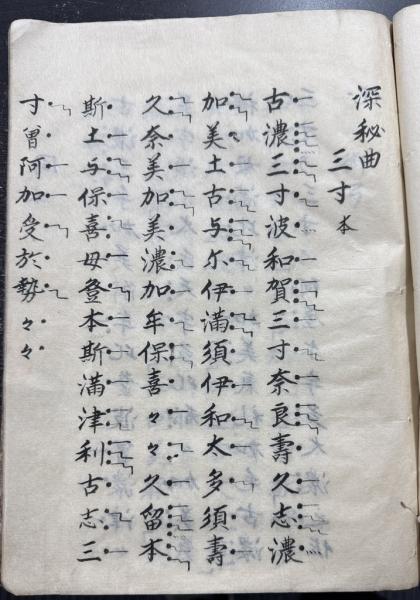 深秘曲
三寸 本
古濃三寸波和賀三寸奈良壽久志濃
加美土古与尓伊満須伊和太多須壽
久奈美加美濃加牟保喜々々久留本
斯土与保喜母登本斯満津利古志三
寸曽阿加受於勢々々